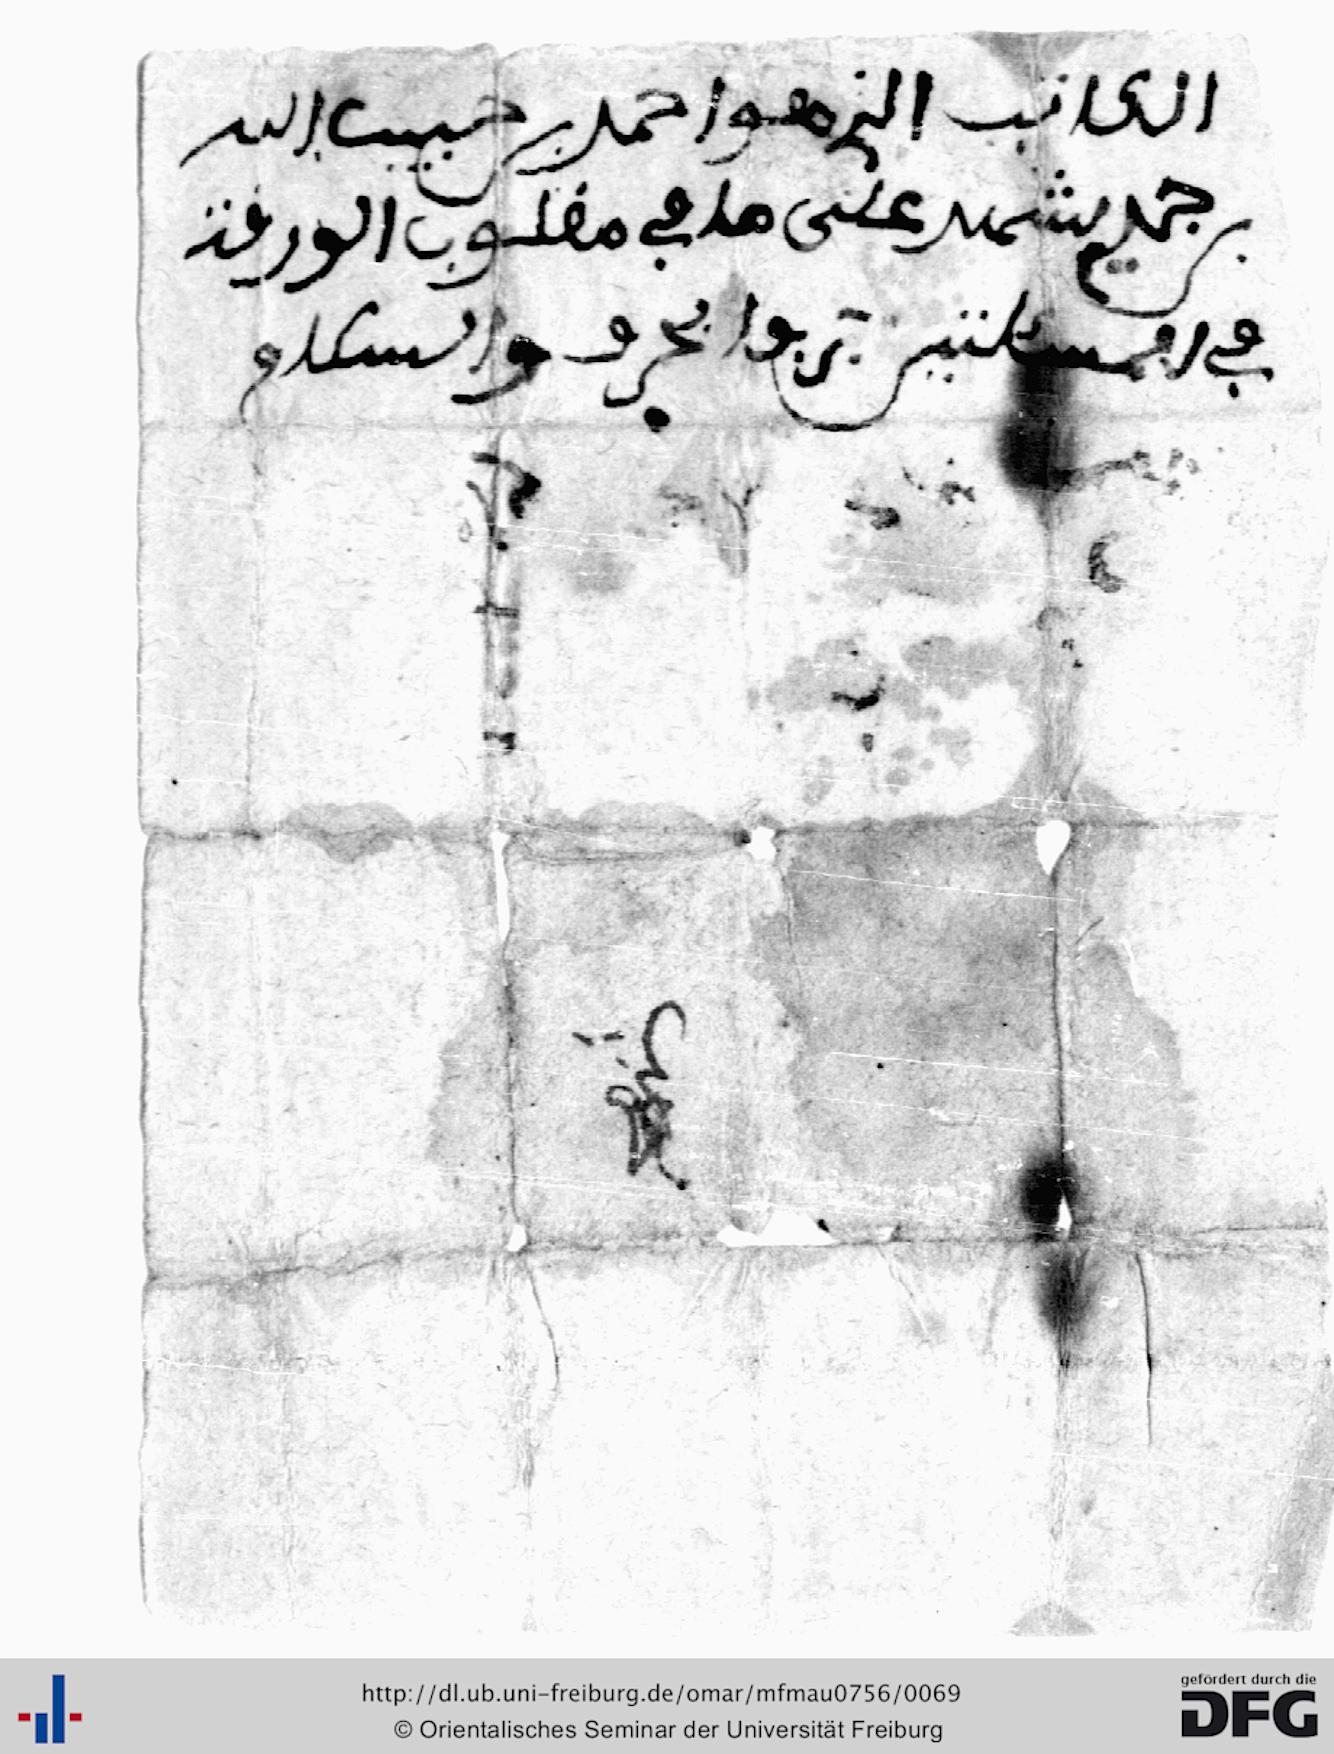 الكاتب الذ هو احمد بن حبيب الله
بن حمد يشهد على ما في مقلوب الورقة
في المسئلتين بحرف والسلام
http://dl.ub.uni-freiburg.de/omar/mfmau0756/0069
© Orientalisches Seminar der Universität Freiburg
gefördert durch die
DFG